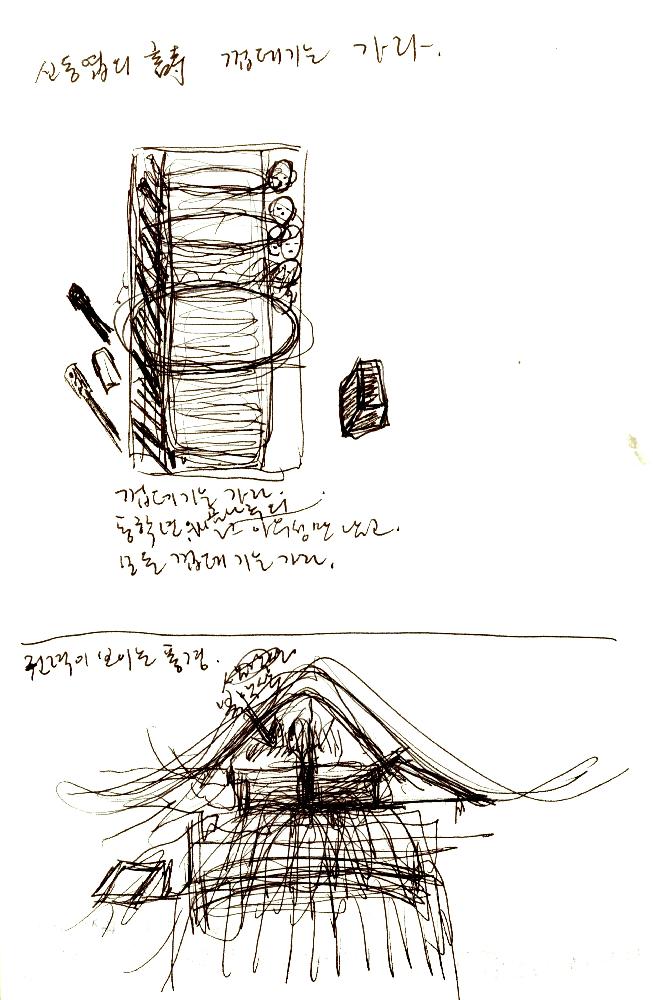 신동엽의 詩 껍데기는 가라.
껍데기는 가라.
동학년 그 아우성만 남고.
모든 껍데기는 가라.
권력이 보이는 풍경.